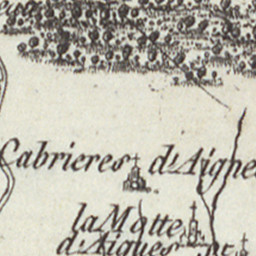 Cabrieres d'Aigues
la Motte
d'Aigues